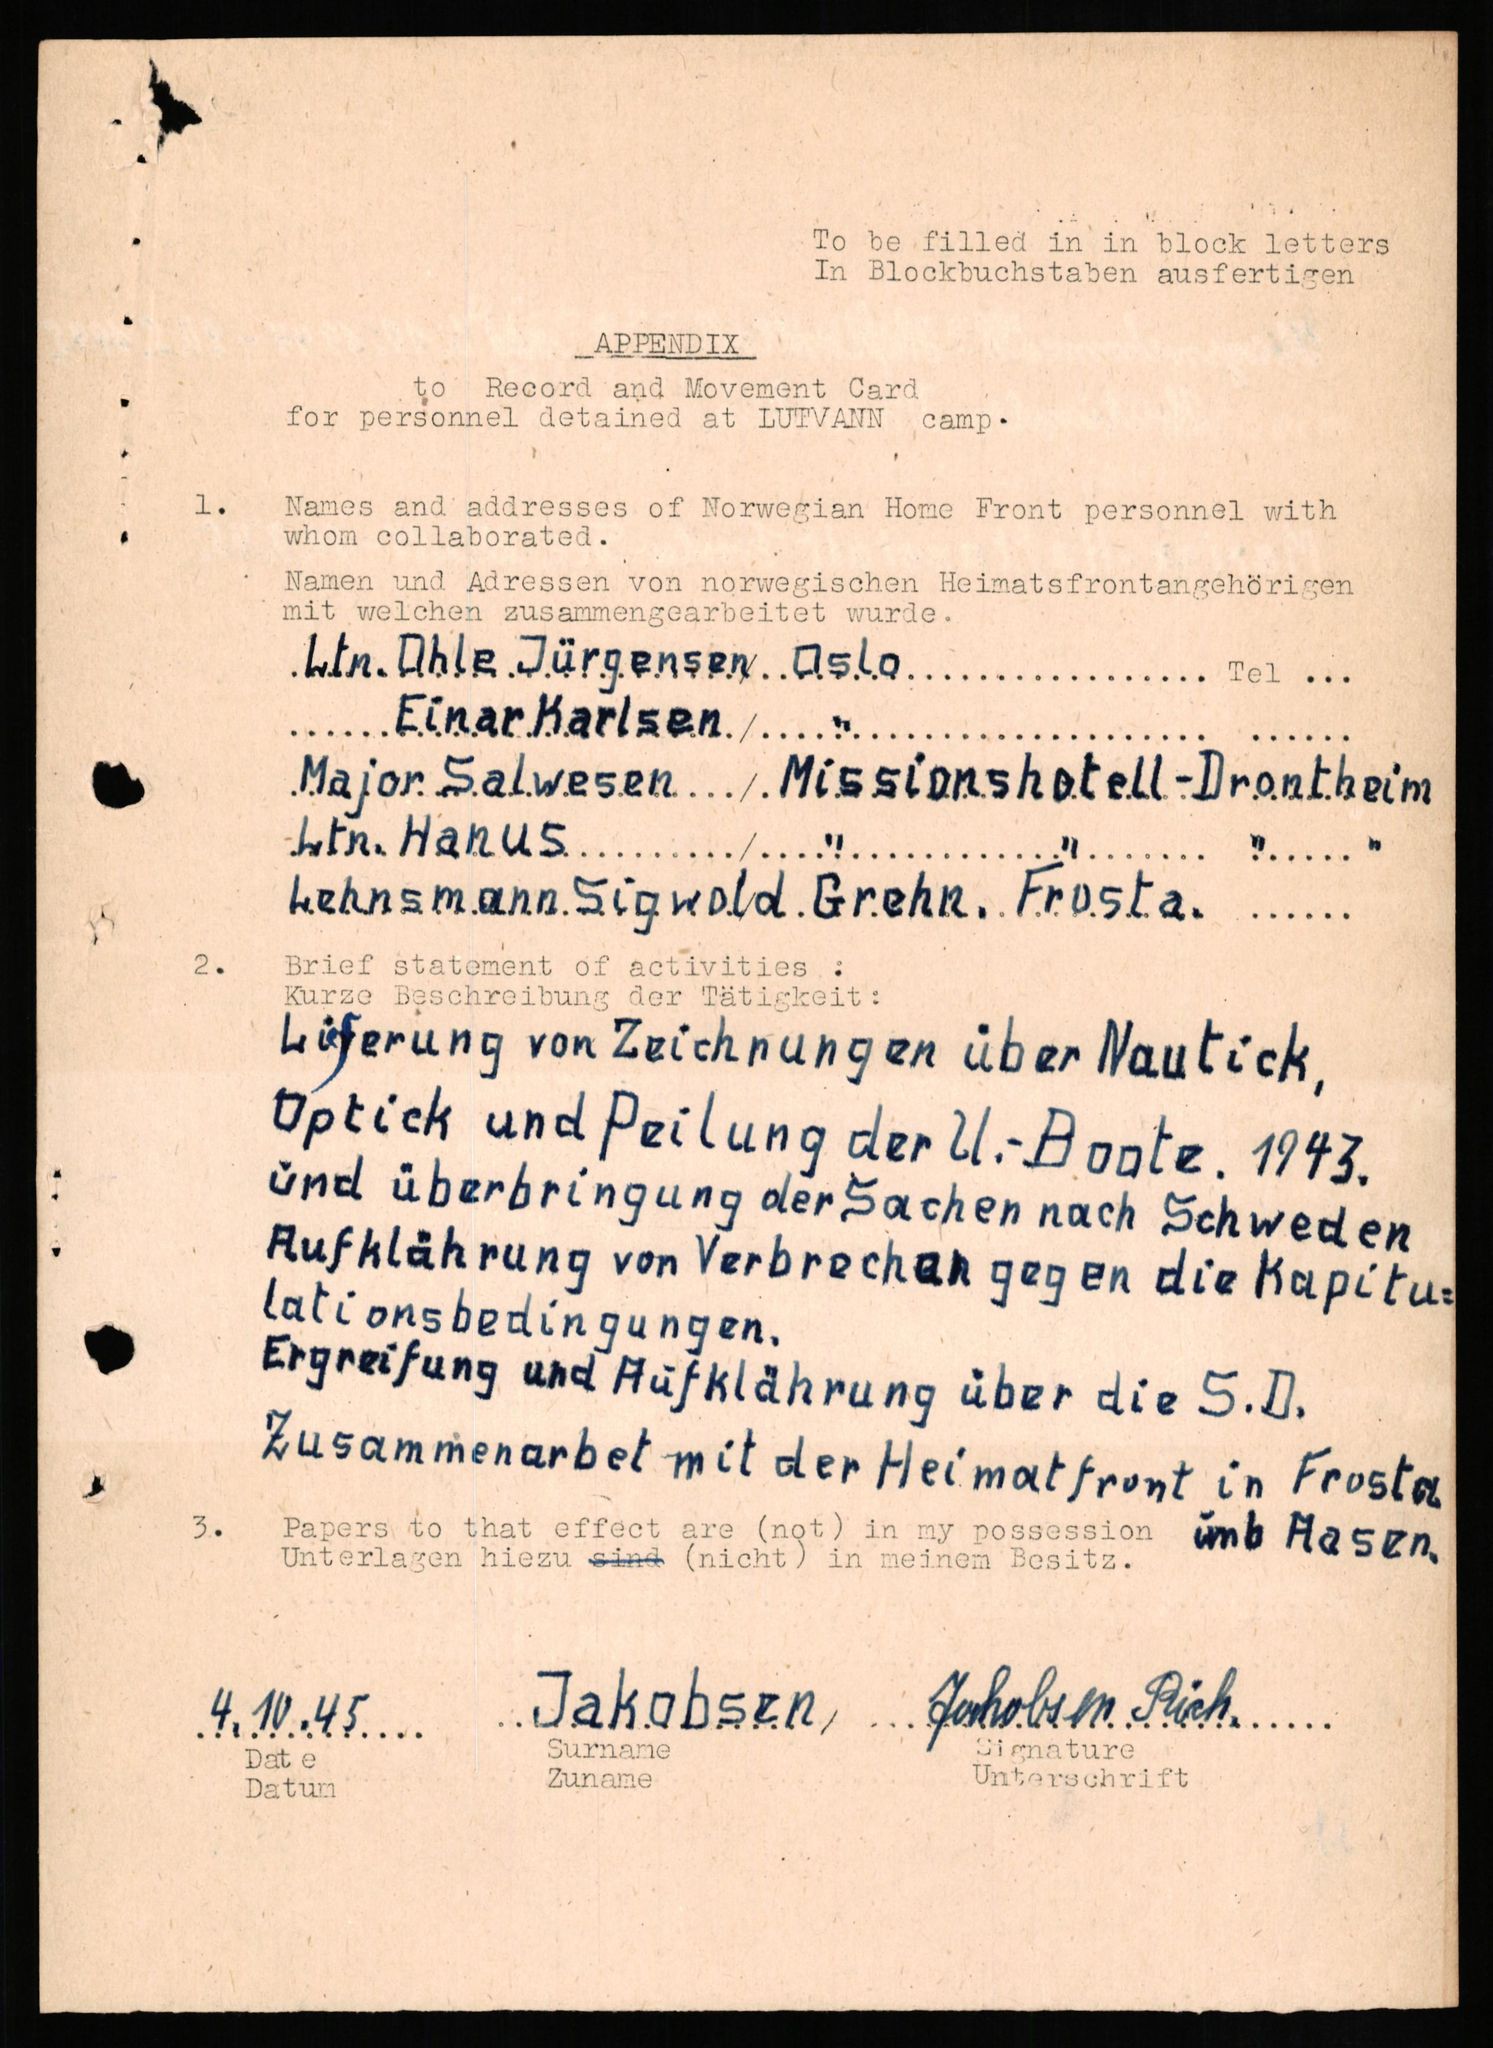 To be filled in in block letters
In Blockbuchstaben ausfertigen
APPENDIX
to Record and Movement Card
for personnel detained at LUTVANN camp.
1. Names and addresses of Norwegian Home Front personnel with
whom collaborated.
Namen und Adressen von norwegischen Heimatsfrontangehörigen
mit welchen zusammengearbeitet wurde.
Ltn. Ohle Jürgensen/ Oslo Tel ...
Einar Karlsen / "
Major Salwesen / Missionshotell-Drontheim
Ltn. Hanus / " " " "
Lehnsmann Sigwold Grehn. Frosta.
2. Brief statement of activities :
Kurze Beschreibung der Tätigkeit:
Liferung von Zeichnungen über Nautick,
Optick und Peilung der U.-Boote. 1943.
und überbringung der Sachen nach Schweden
Aufklährung von Verbrechen gegen die Kapitu=
lationsbedingungen.
Ergreifung und Aufklährung über die S.D.
Zusammenarbet mit der Heimatfront in Frosta
und Aasen.
3. Papers to that effect are (not) in my possession
Unterlagen hiezu sind (nicht) in meinem Besitz.
4.10.45 Jakobsen, Jakobsen Rich.
Date Surname Signature
Datum Zuname Unterschrift